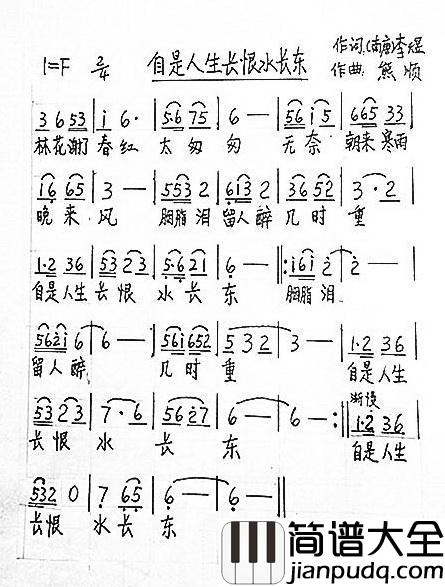 自是人生长恨水长东
作词:(南唐)李煜
1=F 2/4
作曲: 熊顺
3 6 53 | i 6· | 5·6 75 | 6 — | 56 i5 | 665 33 |
林花谢了 春红 太匆匆 无奈 朝来寒雨
i6 65 | 3 — | 553 2 | 613 2 | 36 52 | 3 · 2 |
晚来风 胭脂泪 留人醉 几时重
1·2 36 | 53 23 | 5·6 21 | 6 — |: i6i 2 | 2 — |
自是人生长恨 水长东 胭脂泪
562i 6 | 6 — | 56i 652 | 5 3 2 | 3 — | 1·2 36 |
留人醉 几时重 自是人生
渐慢
53 23 | 7 · 6 | 56 27 | 6 — | 6 — :|| 1·2 36 |
长恨 水 长 东 自是人生
532 0 | 7 65 | 6 — | 6 — ||
长恨 水长东
简谱大全
jianpudq.com